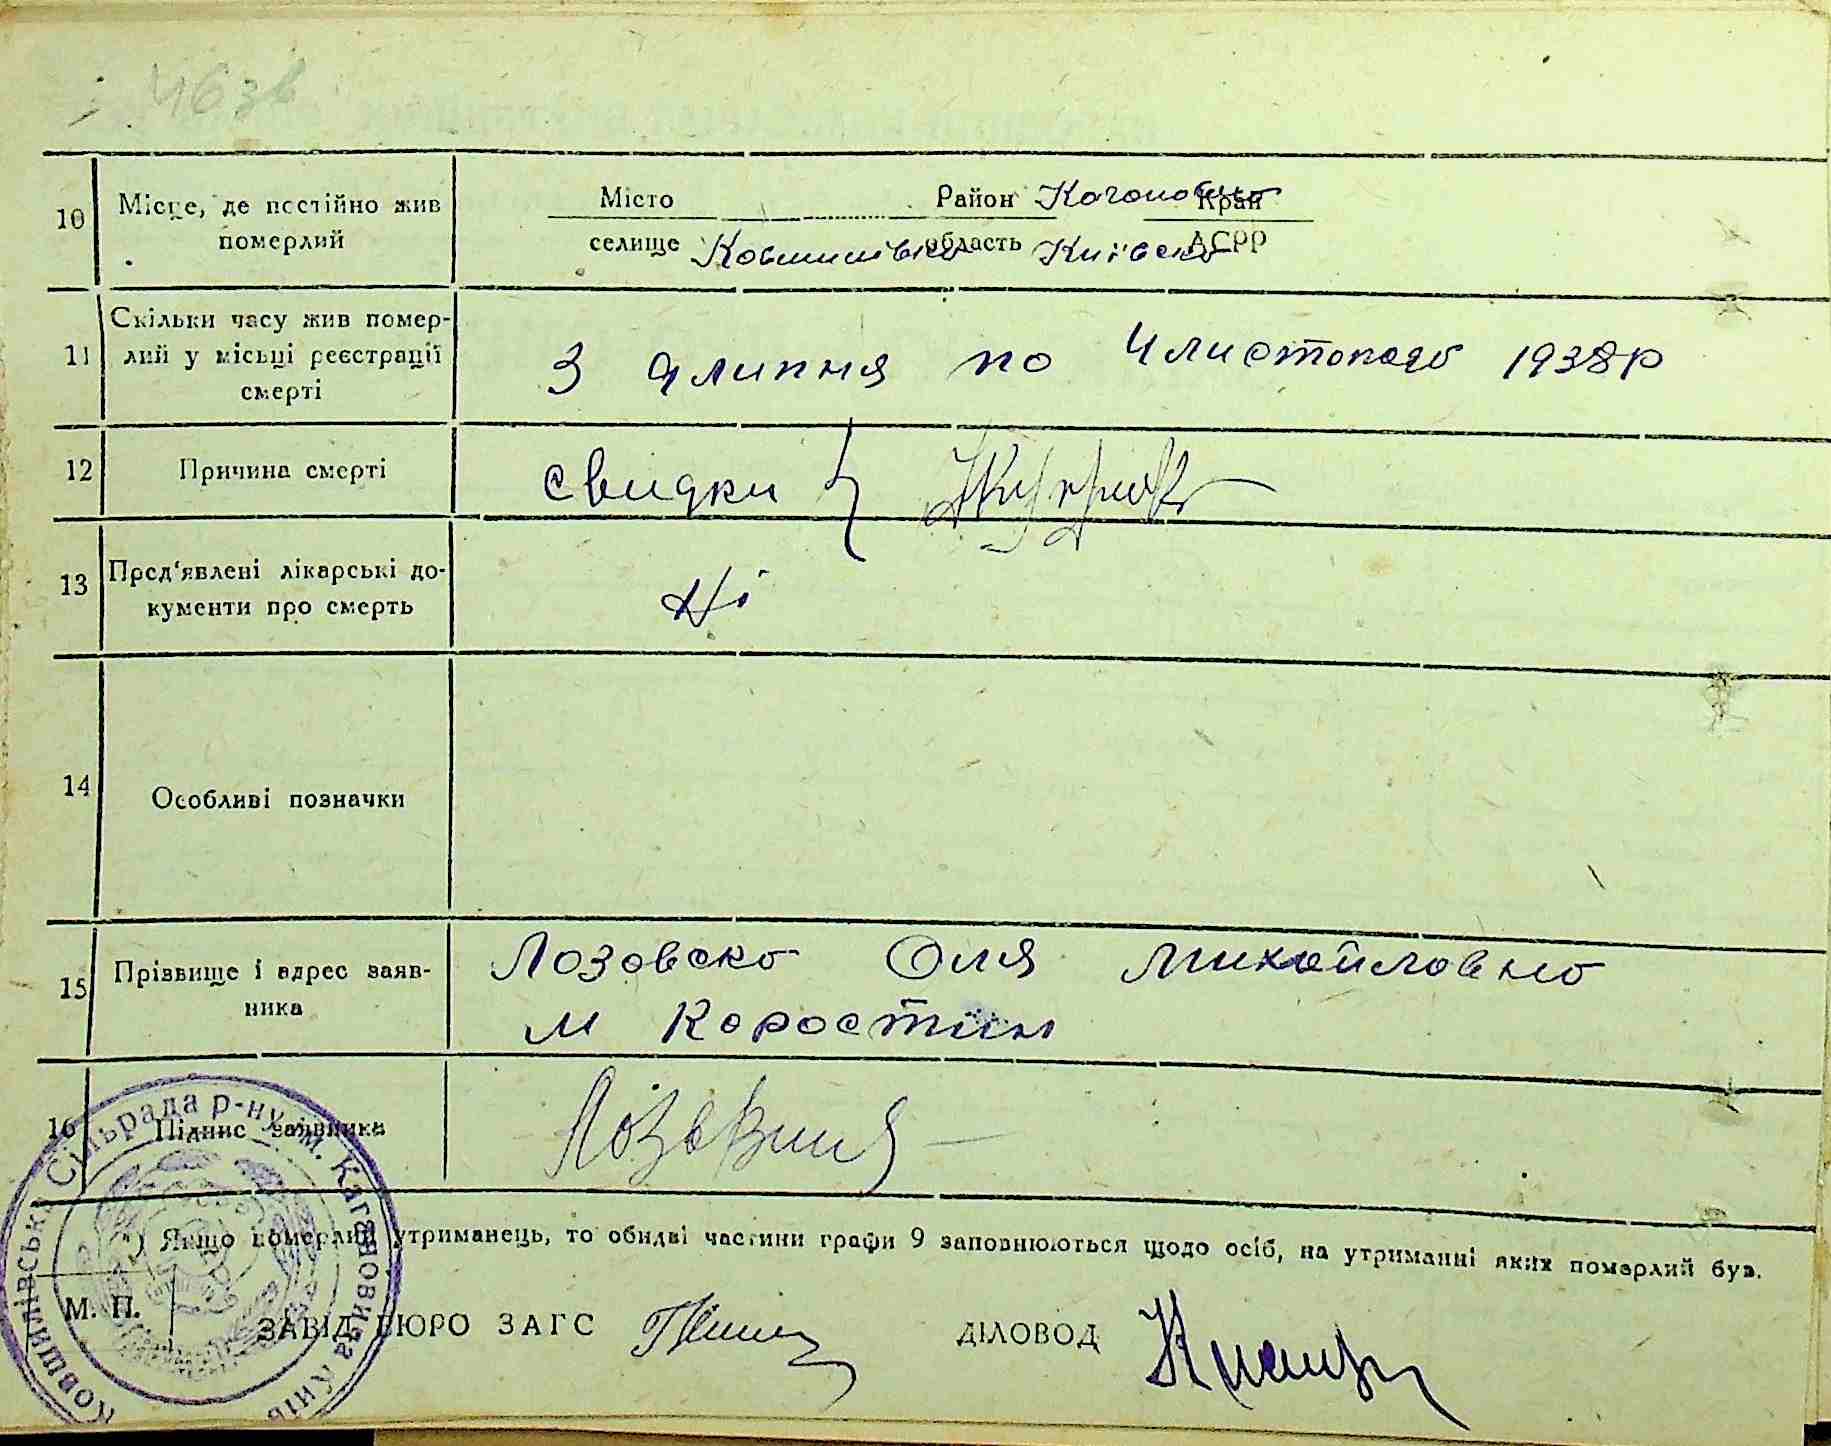 4636
10 Місце, де постійно жив померлий
Місто Район Когоновцко Край
селище Ковшилівко область Київсько АСРР
11 Скільки часу жив помер-
лий у місьці реєстрації
смерті
З 4 липня по 4 листопадо 1938р
12 Причина смерті
свидки
13 Пред'явлені лікарські до-
кументи про смерть
Ні
14 Особливі позначки
15 Прізвище і адрес заяв-
ника
Лозовско Оля Михайловно
м Коростин
16 Підпис заявника
*) Якщо померлий утриманець, то обидві частини графи 9 заповнюються щодо осіб, на утриманні яких померлий був.
М. П.
ЗАВІД. БЮРО ЗАГС ДІЛОВОД
Ковшилівська Сільрада р-ну ім. Кагановича Київ